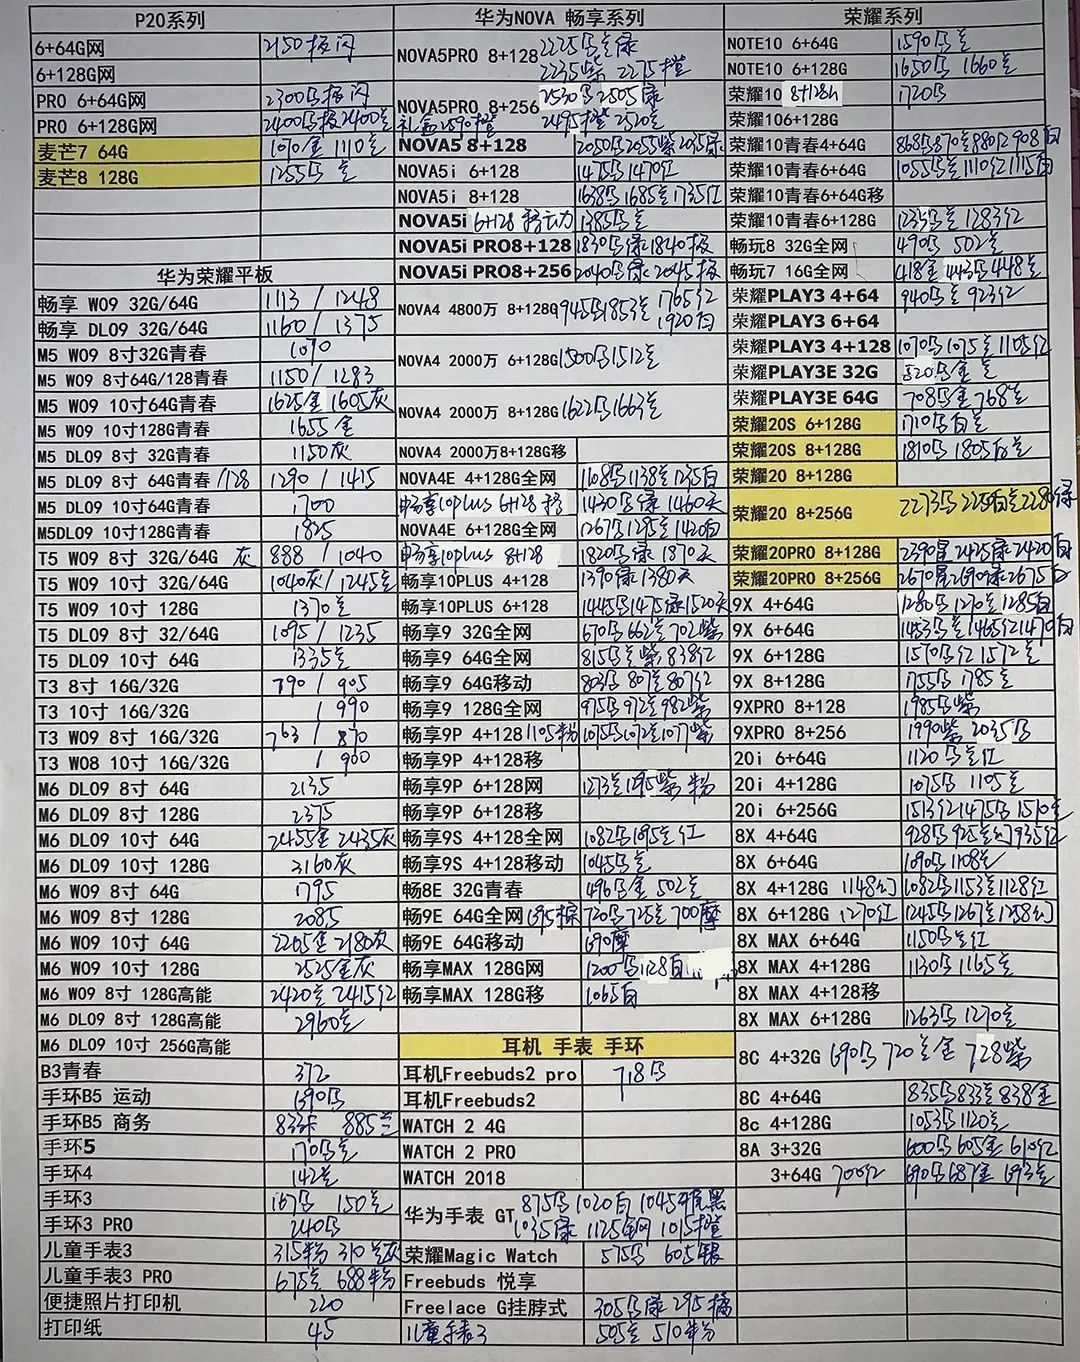 P20系列
6+64G网 2150极闪
6+128G网
PRO 6+64G网 2300乌极闪
PRO 6+128G网 2400乌极2400兰
麦芒7 64G 1090金 1110兰
麦芒8 128G 1255乌 兰
华为荣耀平板
畅享 W09 32G/64G 1113 / 1248
畅享 DL09 32G/64G 1160 / 1375
M5 W09 8寸32G青春 1090
M5 W09 8寸64G/128青春 1150 / 1283
M5 W09 10寸64G青春 1625金 1605灰
M5 W09 10寸128G青春 1655金
M5 DL09 8寸 32G青春 1150灰
M5 DL09 8寸 64G青春 /128 1290 / 1415
M5 DL09 10寸64G青春 1700
M5DL09 10寸128G青春 1825
T5 W09 8寸 32G/64G 灰 888 / 1040
T5 W09 10寸 32G/64G 1040灰 / 1245兰
T5 W09 10寸 128G 1370兰
T5 DL09 8寸 32/64G 1095 / 1235
T5 DL09 10寸 64G 1335兰
T3 8寸 16G/32G 790 / 905
T3 10寸 16G/32G / 990
T3 W09 8寸 16G/32G 763 / 870
T3 W08 10寸 16G/32G / 900
M6 DL09 8寸 64G 2135
M6 DL09 8寸 128G 2375
M6 DL09 10寸 64G 2455金 2435灰
M6 DL09 10寸 128G 3160灰
M6 W09 8寸 64G 1795
M6 W09 8寸 128G 2085
M6 W09 10寸 64G 2205金 2180灰
M6 W09 10寸 128G 2525金灰
M6 W09 8寸 128G高能 2420兰 2415红
M6 DL09 8寸 128G高能 2960兰
M6 DL09 10寸 256G高能
B3青春 372
手环B5 运动 690乌
手环B5 商务 833 885兰
手环5 170乌兰
手环4 142兰
手环3 167乌 150兰
手环3 PRO 240乌
儿童手表3 315粉 310兰灰
儿童手表3 PRO 675兰 688粉
便捷照片打印机 220
打印纸 45
华为NOVA 畅享系列
NOVA5PRO 8+128 2225乌兰绿
2235紫 2275橙
NOVA5PRO 8+256 2530乌 2505绿
礼盒2590橙 2495橙 2520兰
NOVA5 8+128 2050乌2055紫2035绿
NOVA5i 6+128 1475乌1470红
NOVA5i 8+128 1638乌1685兰1735红
NOVA5i 6+128 移动 1385乌兰
NOVA5i PRO8+128 1830乌绿1840极
NOVA5i PRO8+256 2040乌绿 2045极
NOVA4 4800万 8+128G 1945乌1853兰 1765红
1920白
NOVA4 2000万 6+128G 1500乌1512兰
NOVA4 2000万 8+128G 1622乌1663兰
NOVA4 2000万8+128G移
NOVA4E 4+128G全网 1108乌1138兰1235白
畅享10plus 6+128 移 1430乌绿 1460天
NOVA4E 6+128G全网 1267乌1285兰1420白
畅享10plus 8+128 1820乌绿 1870天
畅享10PLUS 4+128 1390绿 1380天
畅享10PLUS 6+128 1445乌1475绿1520天
畅享9 32G全网 670乌 662兰 702紫
畅享9 64G全网 815乌兰紫 838红
畅享9 64G移动 803乌 807兰807红
畅享9 128G全网 975乌972兰982紫
畅享9P 4+128 1105粉 1075乌1072兰1077紫
畅享9P 4+128移
畅享9P 6+128网 1273兰1295紫 粉
畅享9P 6+128移
畅享9S 4+128全网 1082乌1095兰红
畅享9S 4+128移动 1045乌兰
畅8E 32G青春 496乌金 502兰
畅9E 64G全网 695棕 720乌725兰 700摩
畅9E 64G移动 690摩
畅享MAX 128G网 1200乌1128白
畅享MAX 128G移 1065白
耳机 手表 手环
耳机Freebuds2 pro 718乌
耳机Freebuds2
WATCH 2 4G
WATCH 2 PRO
WATCH 2018
华为手表 GT 875乌1020白 1045雅黑
1035绿 1125钢 1015橙
荣耀Magic Watch 575乌 605银
Freebuds 悦享
Freelace G挂脖式 305乌绿 295橘
儿童手表3 505兰 510粉
荣耀系列
NOTE10 6+64G 1590乌兰
NOTE10 6+128G 1650乌 1660兰
荣耀10 8+128G 1720乌
荣耀106+128G
荣耀10青春4+64G 868乌870兰880红908白
荣耀10青春6+64G 1055乌兰1110红1115白
荣耀10青春6+64G移
荣耀10青春6+128G 1235乌兰 1283红
畅玩8 32G全网 490乌 502兰
畅玩7 16G全网 418金 443乌 448兰
荣耀PLAY3 4+64 940乌兰 923红
荣耀PLAY3 6+64
荣耀PLAY3 4+128 1070乌1075兰1105红
荣耀PLAY3E 32G 520乌金 兰
荣耀PLAY3E 64G 708乌金 768兰
荣耀20S 6+128G 1710乌白兰
荣耀20S 8+128G 1810乌 1805白兰
荣耀20 8+128G
荣耀20 8+256G 2273乌 2250白兰2280绿
荣耀20PRO 8+128G 2390星 2425绿 2420白
荣耀20PRO 8+256G 2670星2690绿2675白
9X 4+64G 1280乌 1270兰 1285白
9X 6+64G 1453乌兰1465红1470白
9X 6+128G 1570乌红 1572兰
9X 8+128G 1755乌 1785兰
9XPRO 8+128 1985乌紫
9XPRO 8+256 1990紫 2035乌
20i 6+64G 1120乌兰红
20i 4+128G 1075乌 1105兰
20i 6+256G 1513红1475乌1510兰
8X 4+64G 928乌925兰幻935红
8X 6+64G 1090乌1108兰
8X 4+128G 1148幻 1082乌1153兰1128红
8X 6+128G 1270红 1245乌1267兰1258幻
8X MAX 6+64G 1150乌兰红
8X MAX 4+128G 1130乌1165兰
8X MAX 4+128移
8X MAX 6+128G 1263乌 1270兰
8C 4+32G 690乌 720兰金 728紫
8C 4+64G 835乌833兰838金
8c 4+128G 1053乌1120兰
8A 3+32G 600乌 605金 610红
3+64G 700红 690乌687金 693兰